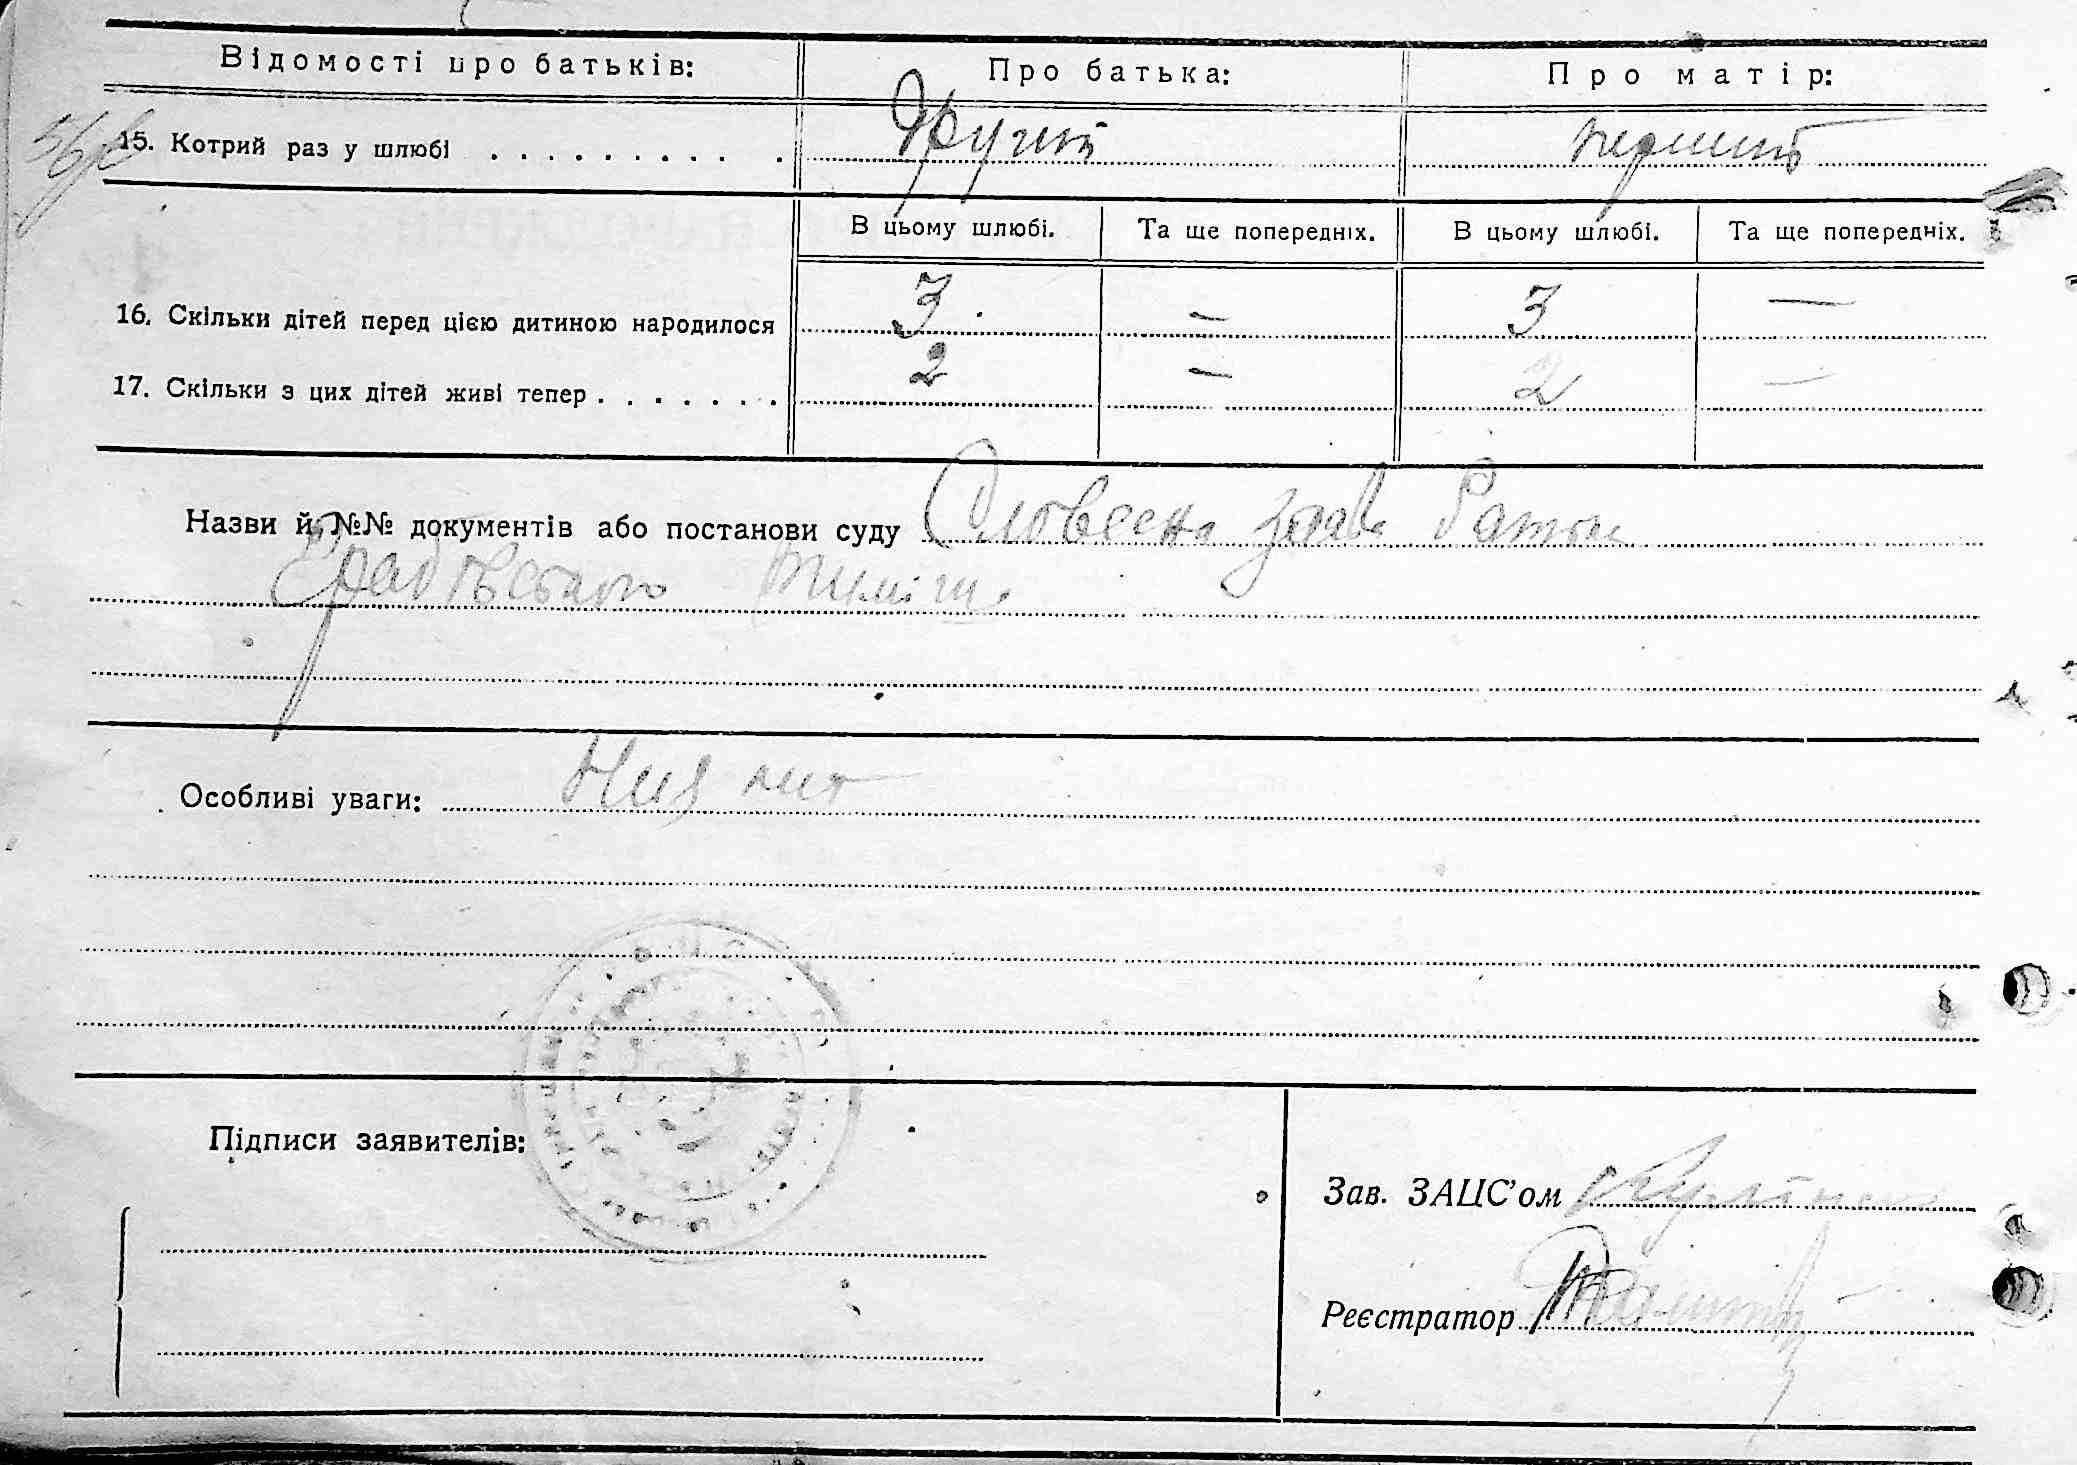 Відомості про батьків: Про батька: Про матір:
15. Котрий раз у шлюбі . . . . . . . . . . Другий перший
В цьому шлюбі. Та ще попередніх. В цьому шлюбі. Та ще попередніх.
16. Скільки дітей перед цією дитиною народилося 3 – 3 —
17. Скільки з цих дітей живі тепер . . . . . . . 2 – 2 —
Назви й №№ документів або постанови суду Словесна заява
Особливі уваги:
Підписи заявителів:
Зав. ЗАЦС’ом
Реєстратор